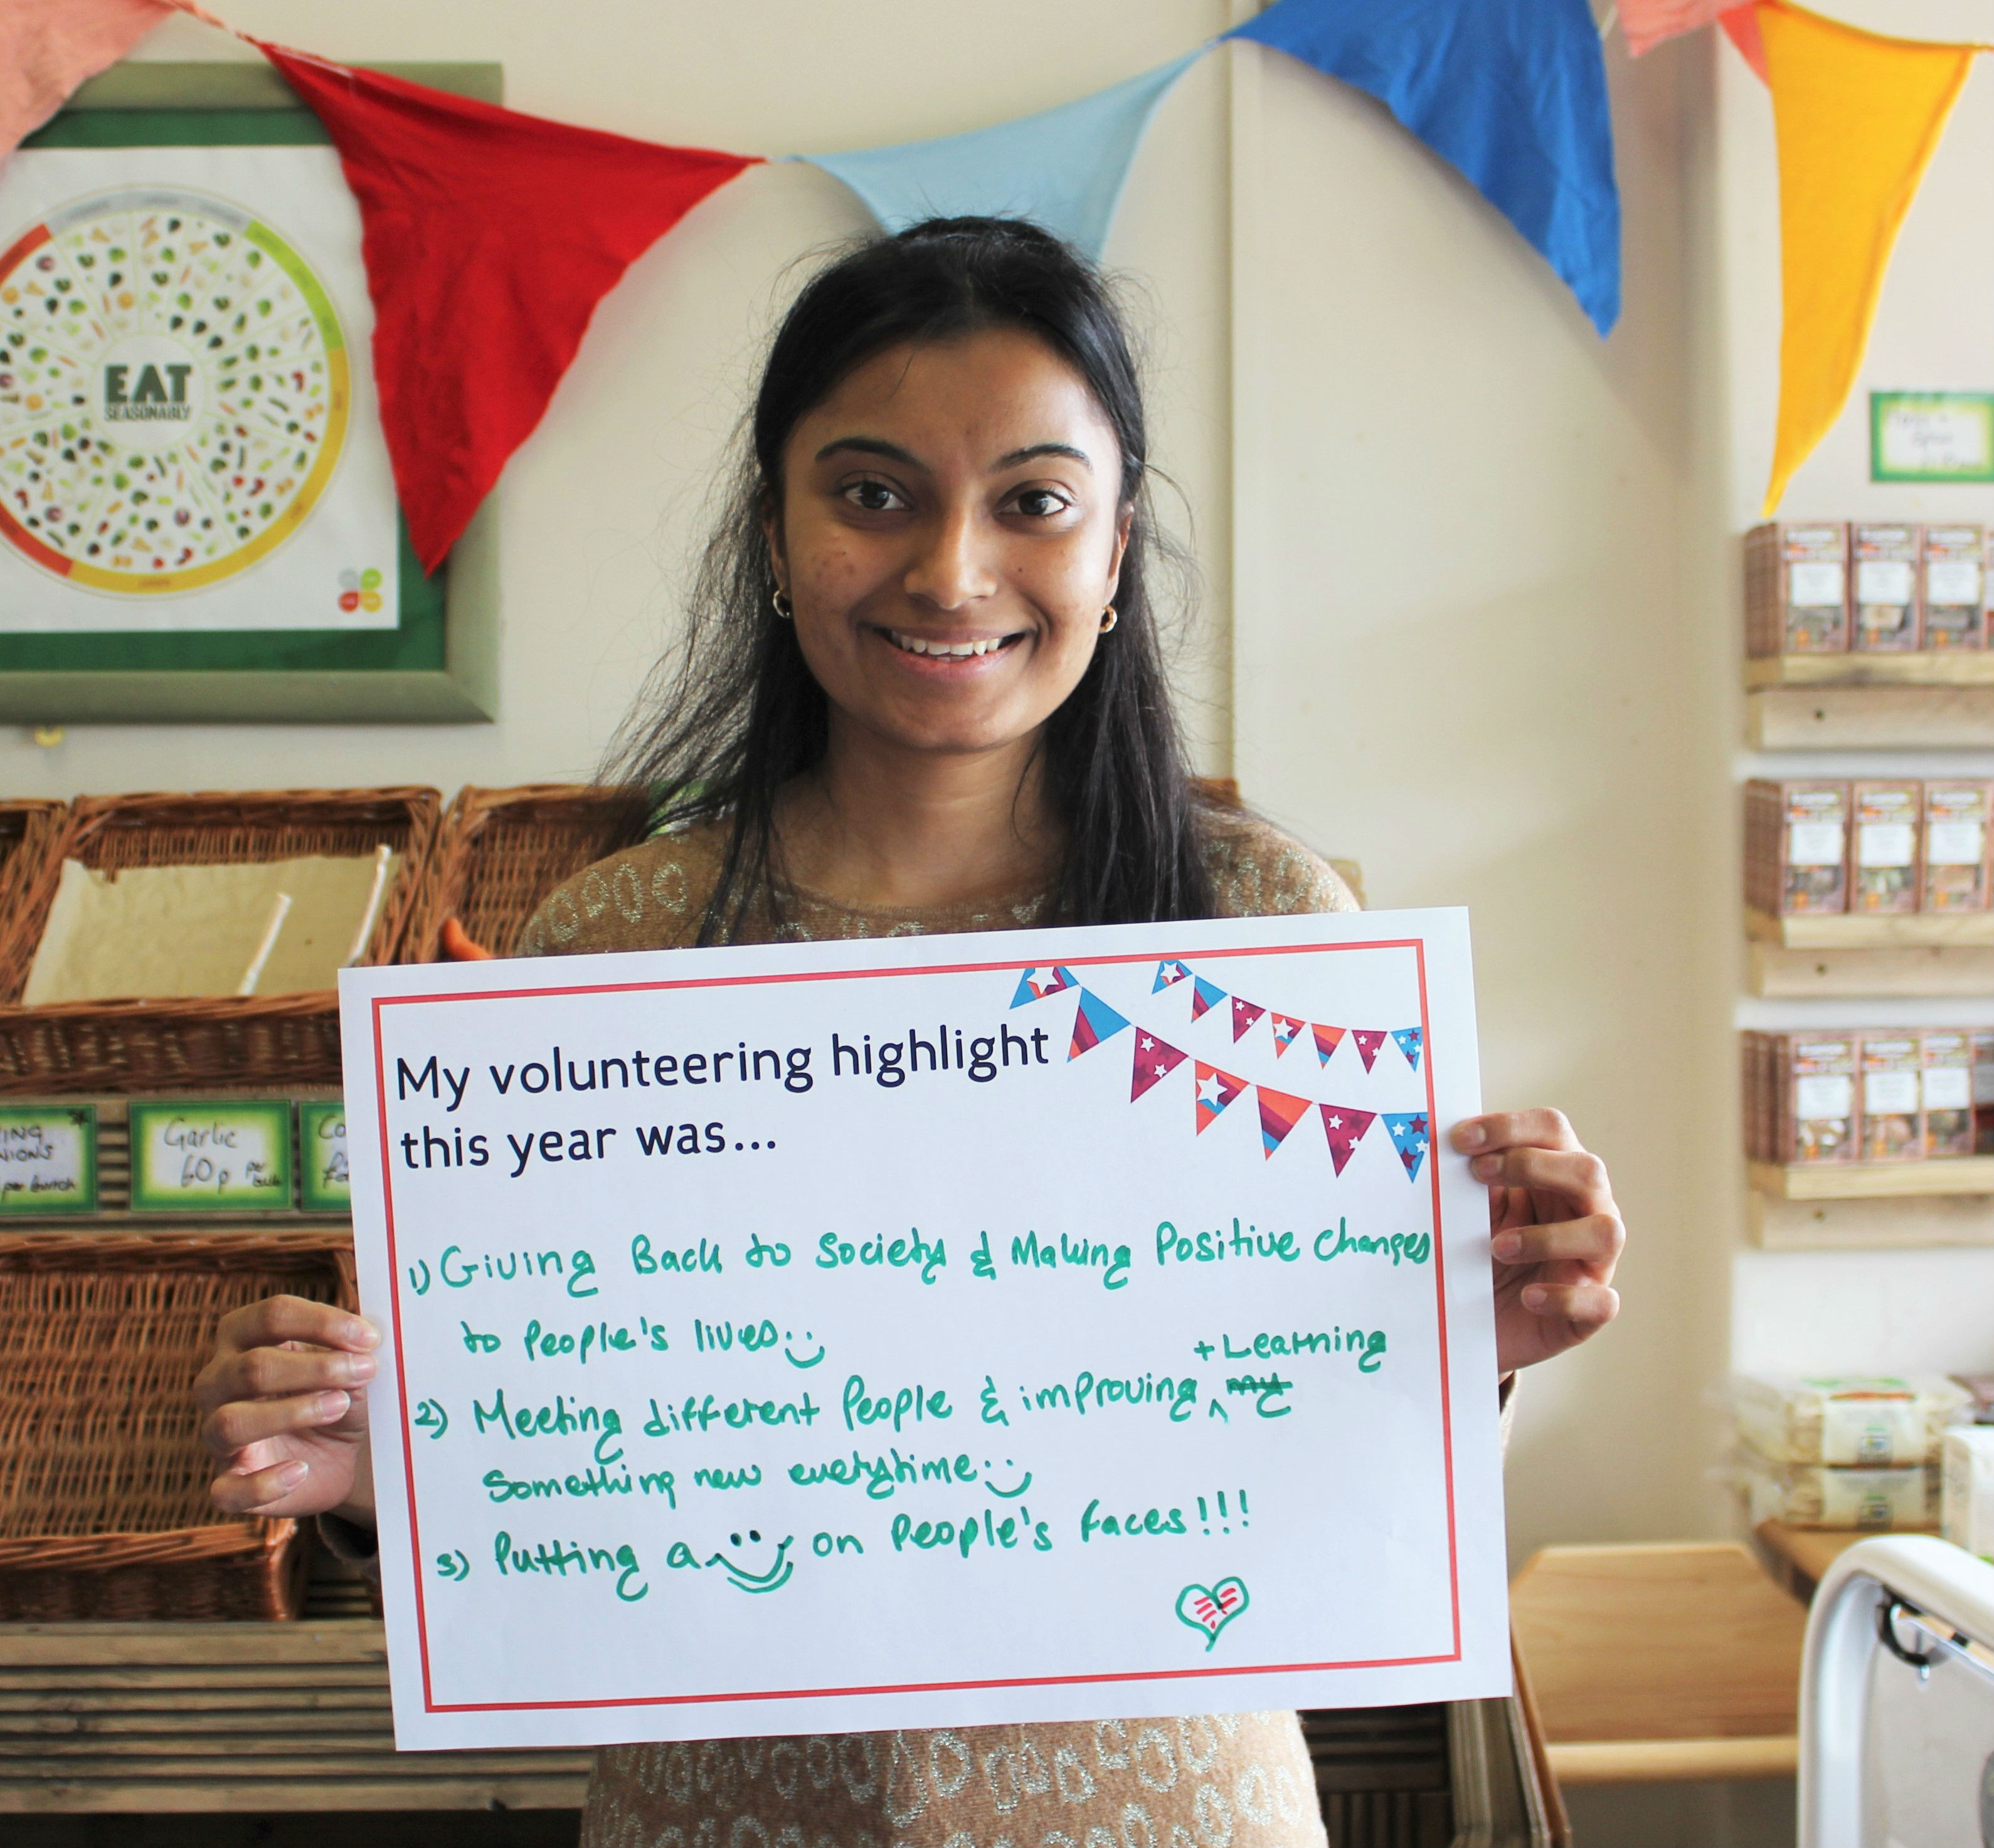 EAT
SEASONABLY
Garlic
60p per
bulb
per bunch
My volunteering highlight
this year was...
1) Giving Back to Society & Making Positive Changes
to People's lives
+ Learning
2) Meeting different People & improving
Something new everytime
3) Putting a on People's faces!!!